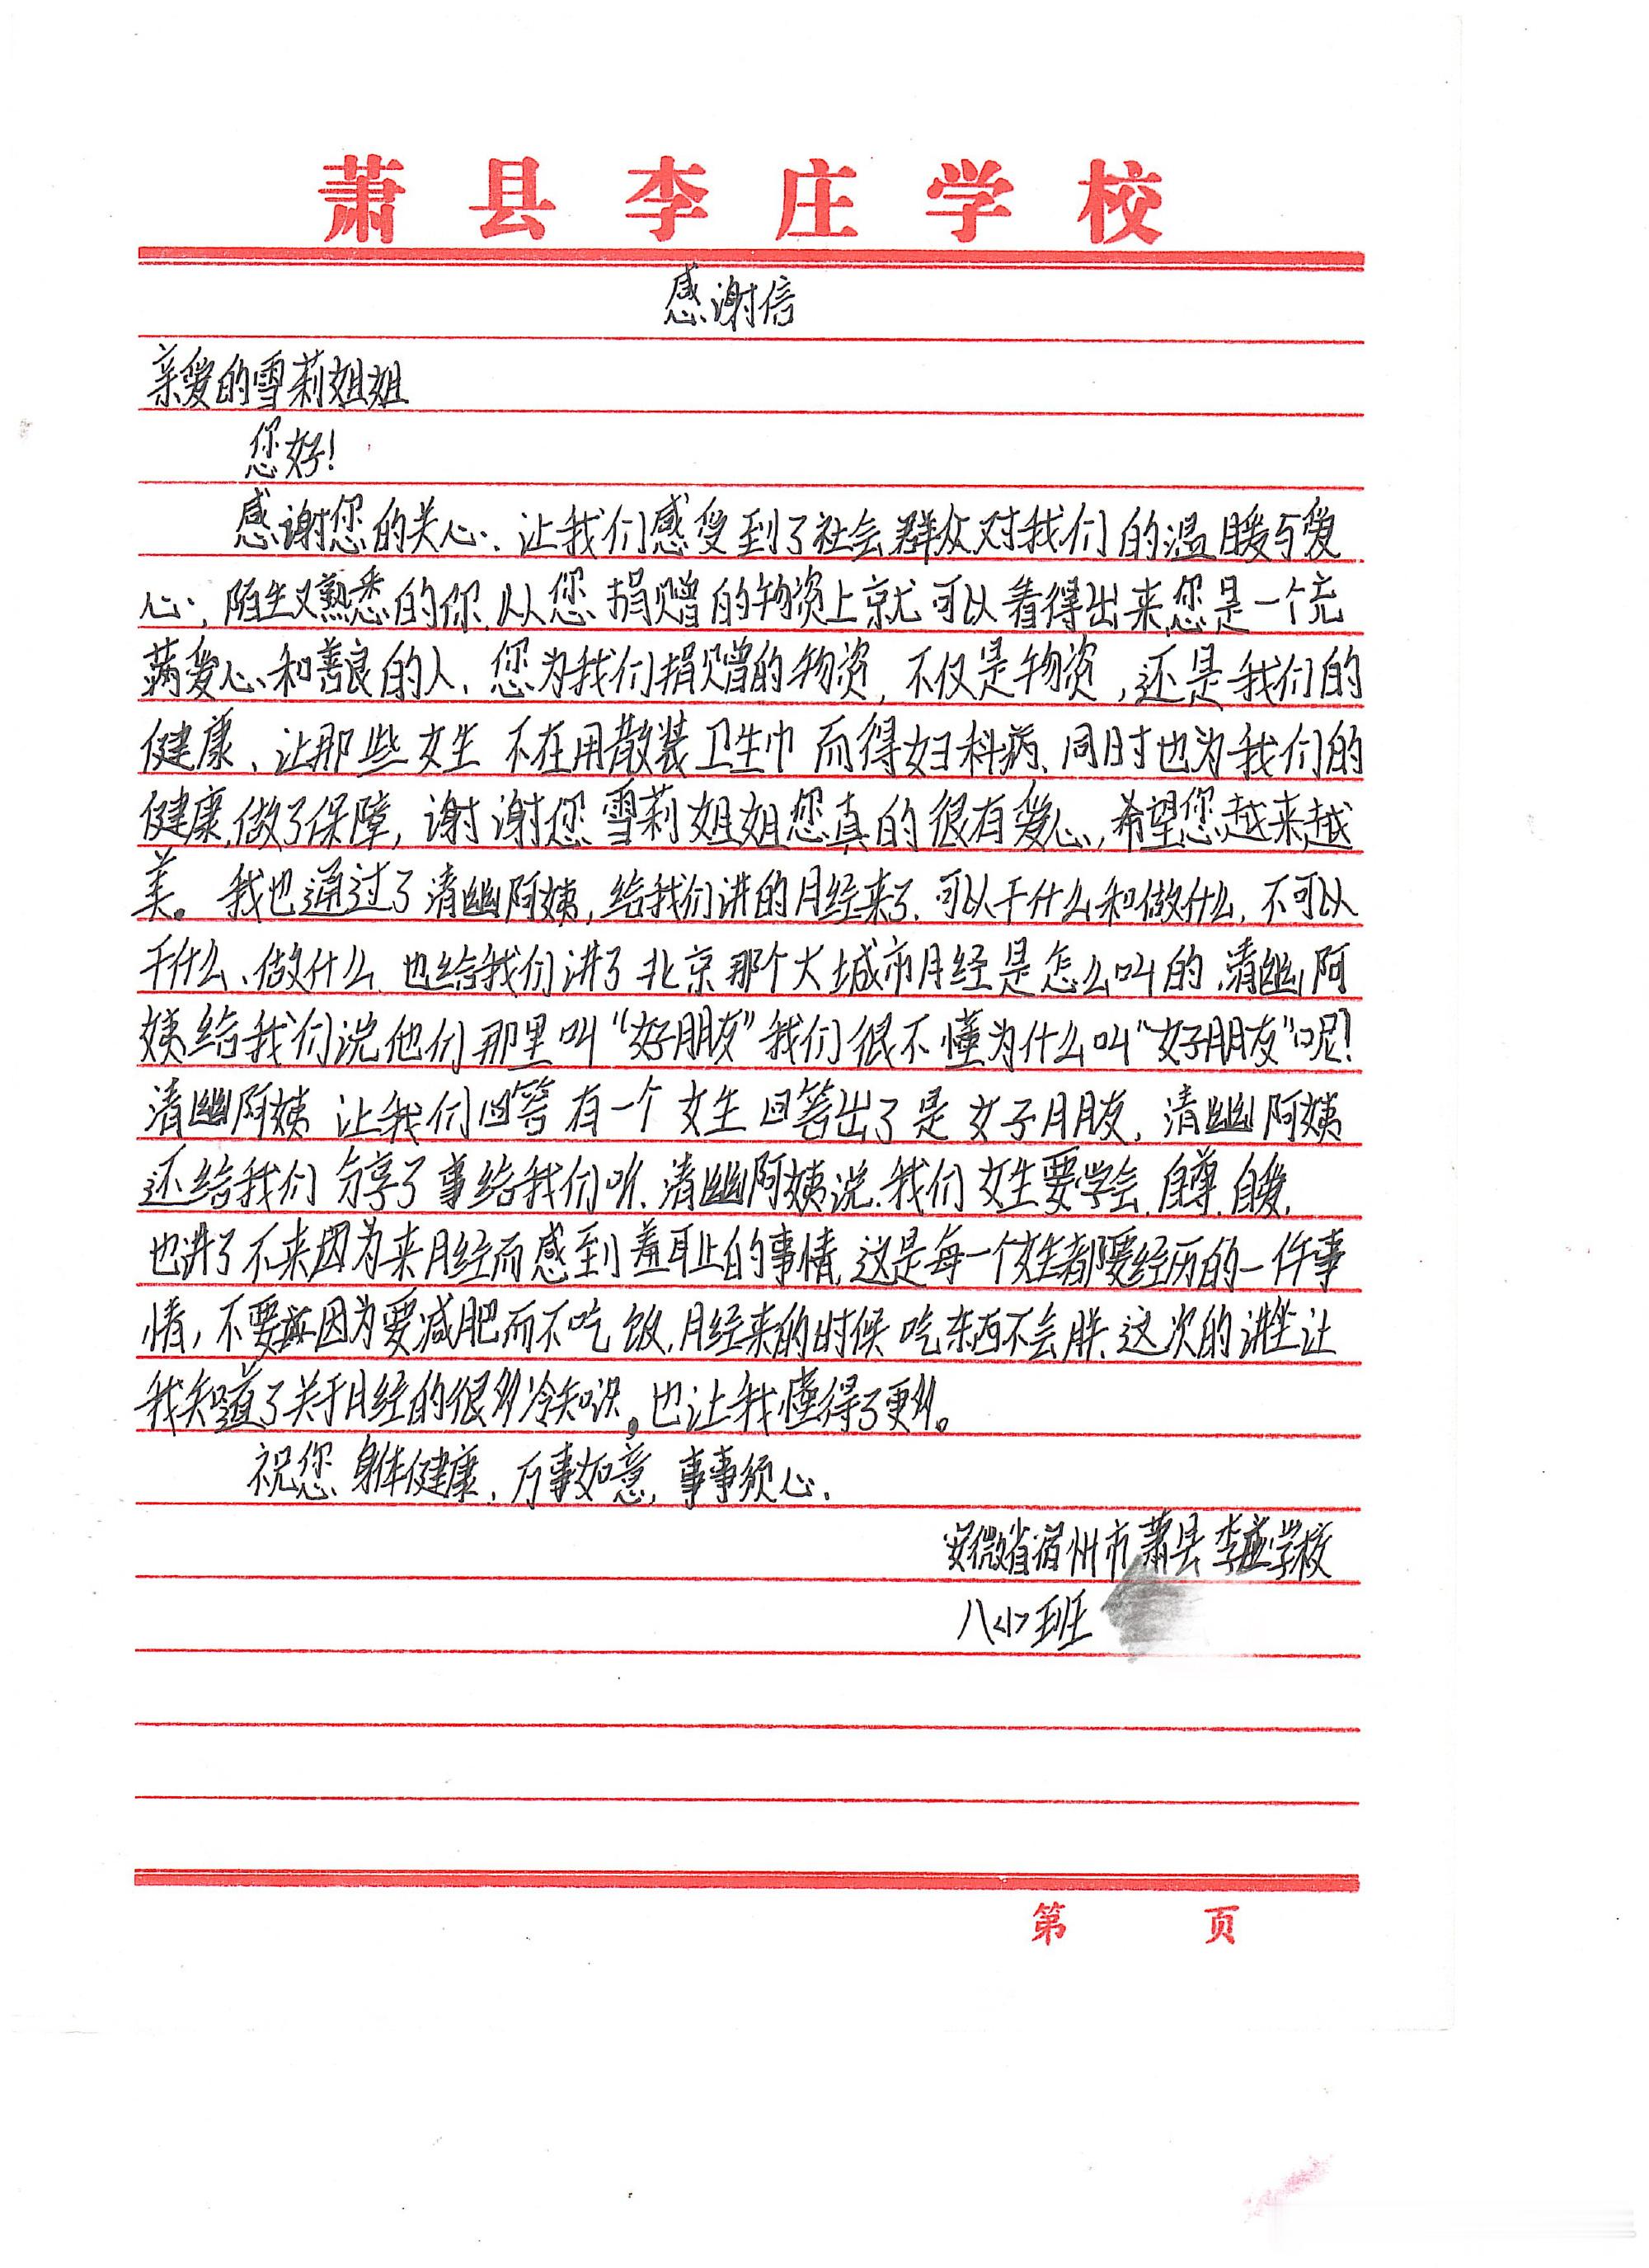 萧县李庄学校
感谢信
亲爱的雪莉姐姐
您好!
感谢您的关心、让我们感受到了社会群众对我们的温暖与爱
心、陌生又熟悉的你、从您捐赠的物资上就可以看得出来,您是一个充
满爱心和善良的人、您为我们捐赠的物资,不仅是物资,还是我们的
健康、让那些女生不在用散装卫生巾而得妇科病、同时也为我们的
健康,做了保障,谢谢您雪莉姐姐您真的很有爱心,希望您,越来越
美。我也通过了清幽阿姨,给我们讲的月经来了、可以干什么和做什么,不可以
干什么、做什么、也给我们讲了北京那个大城市月经是怎么叫的,清幽阿
姨给我们说他们那里叫“好朋友”我们很不懂为什么叫“好朋友”呢!
清幽阿姨让我们回答有一个女生回答出了是女子月朋友,清幽阿姨
还给我们分享了事给我们听、清幽阿姨说、我们女生要学会、自尊、自爱,
也讲了不来因为来月经而感到羞耻的事情,这是每一个女生都要经历的一件事
情,不要因为要减肥而不吃饭,月经来的时候吃东西不会胖、这次的讲坐让
我知道了关于月经的很多冷知识。也让我懂得了更多。
祝您身体健康、万事如意,事事顺心、
安徽省宿州市萧县李庄学校
八<1>班
第 页